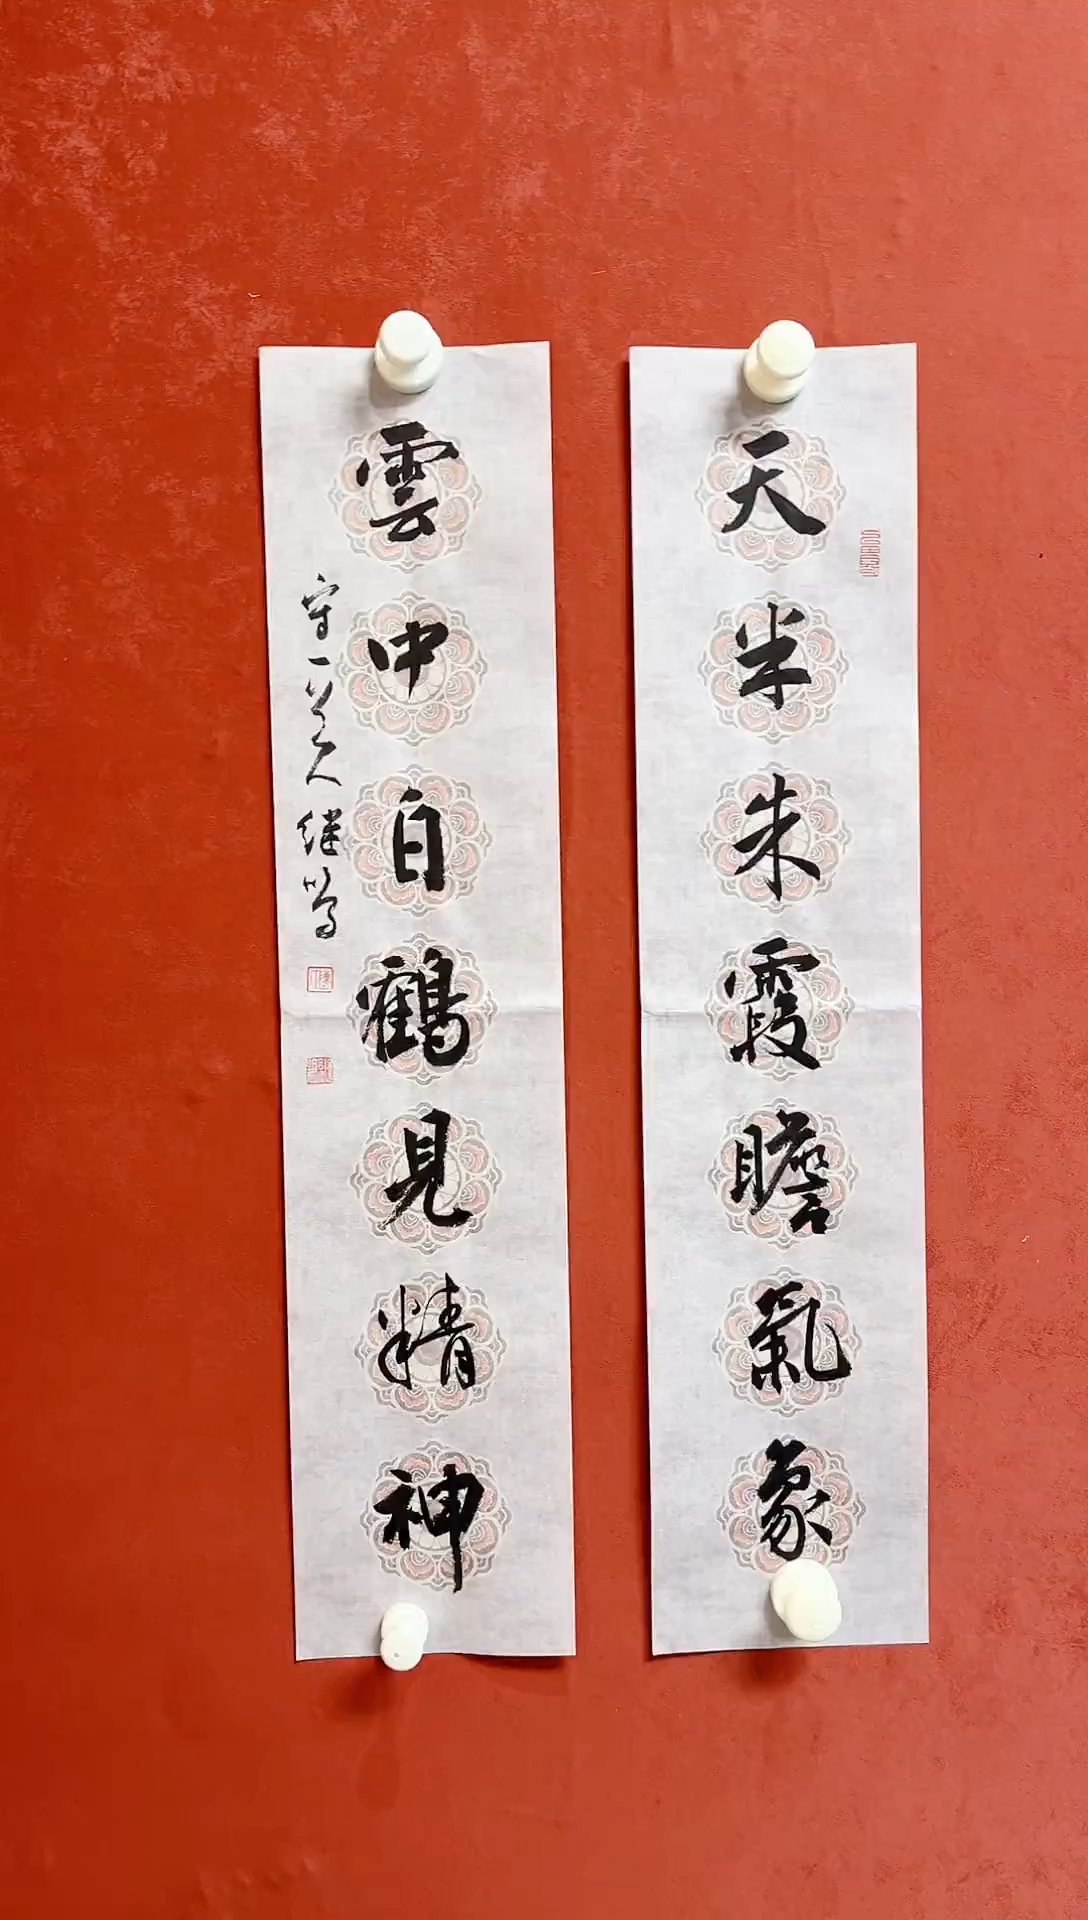 天半朱霞瞻氣象
雲中白鶴見精神
守一